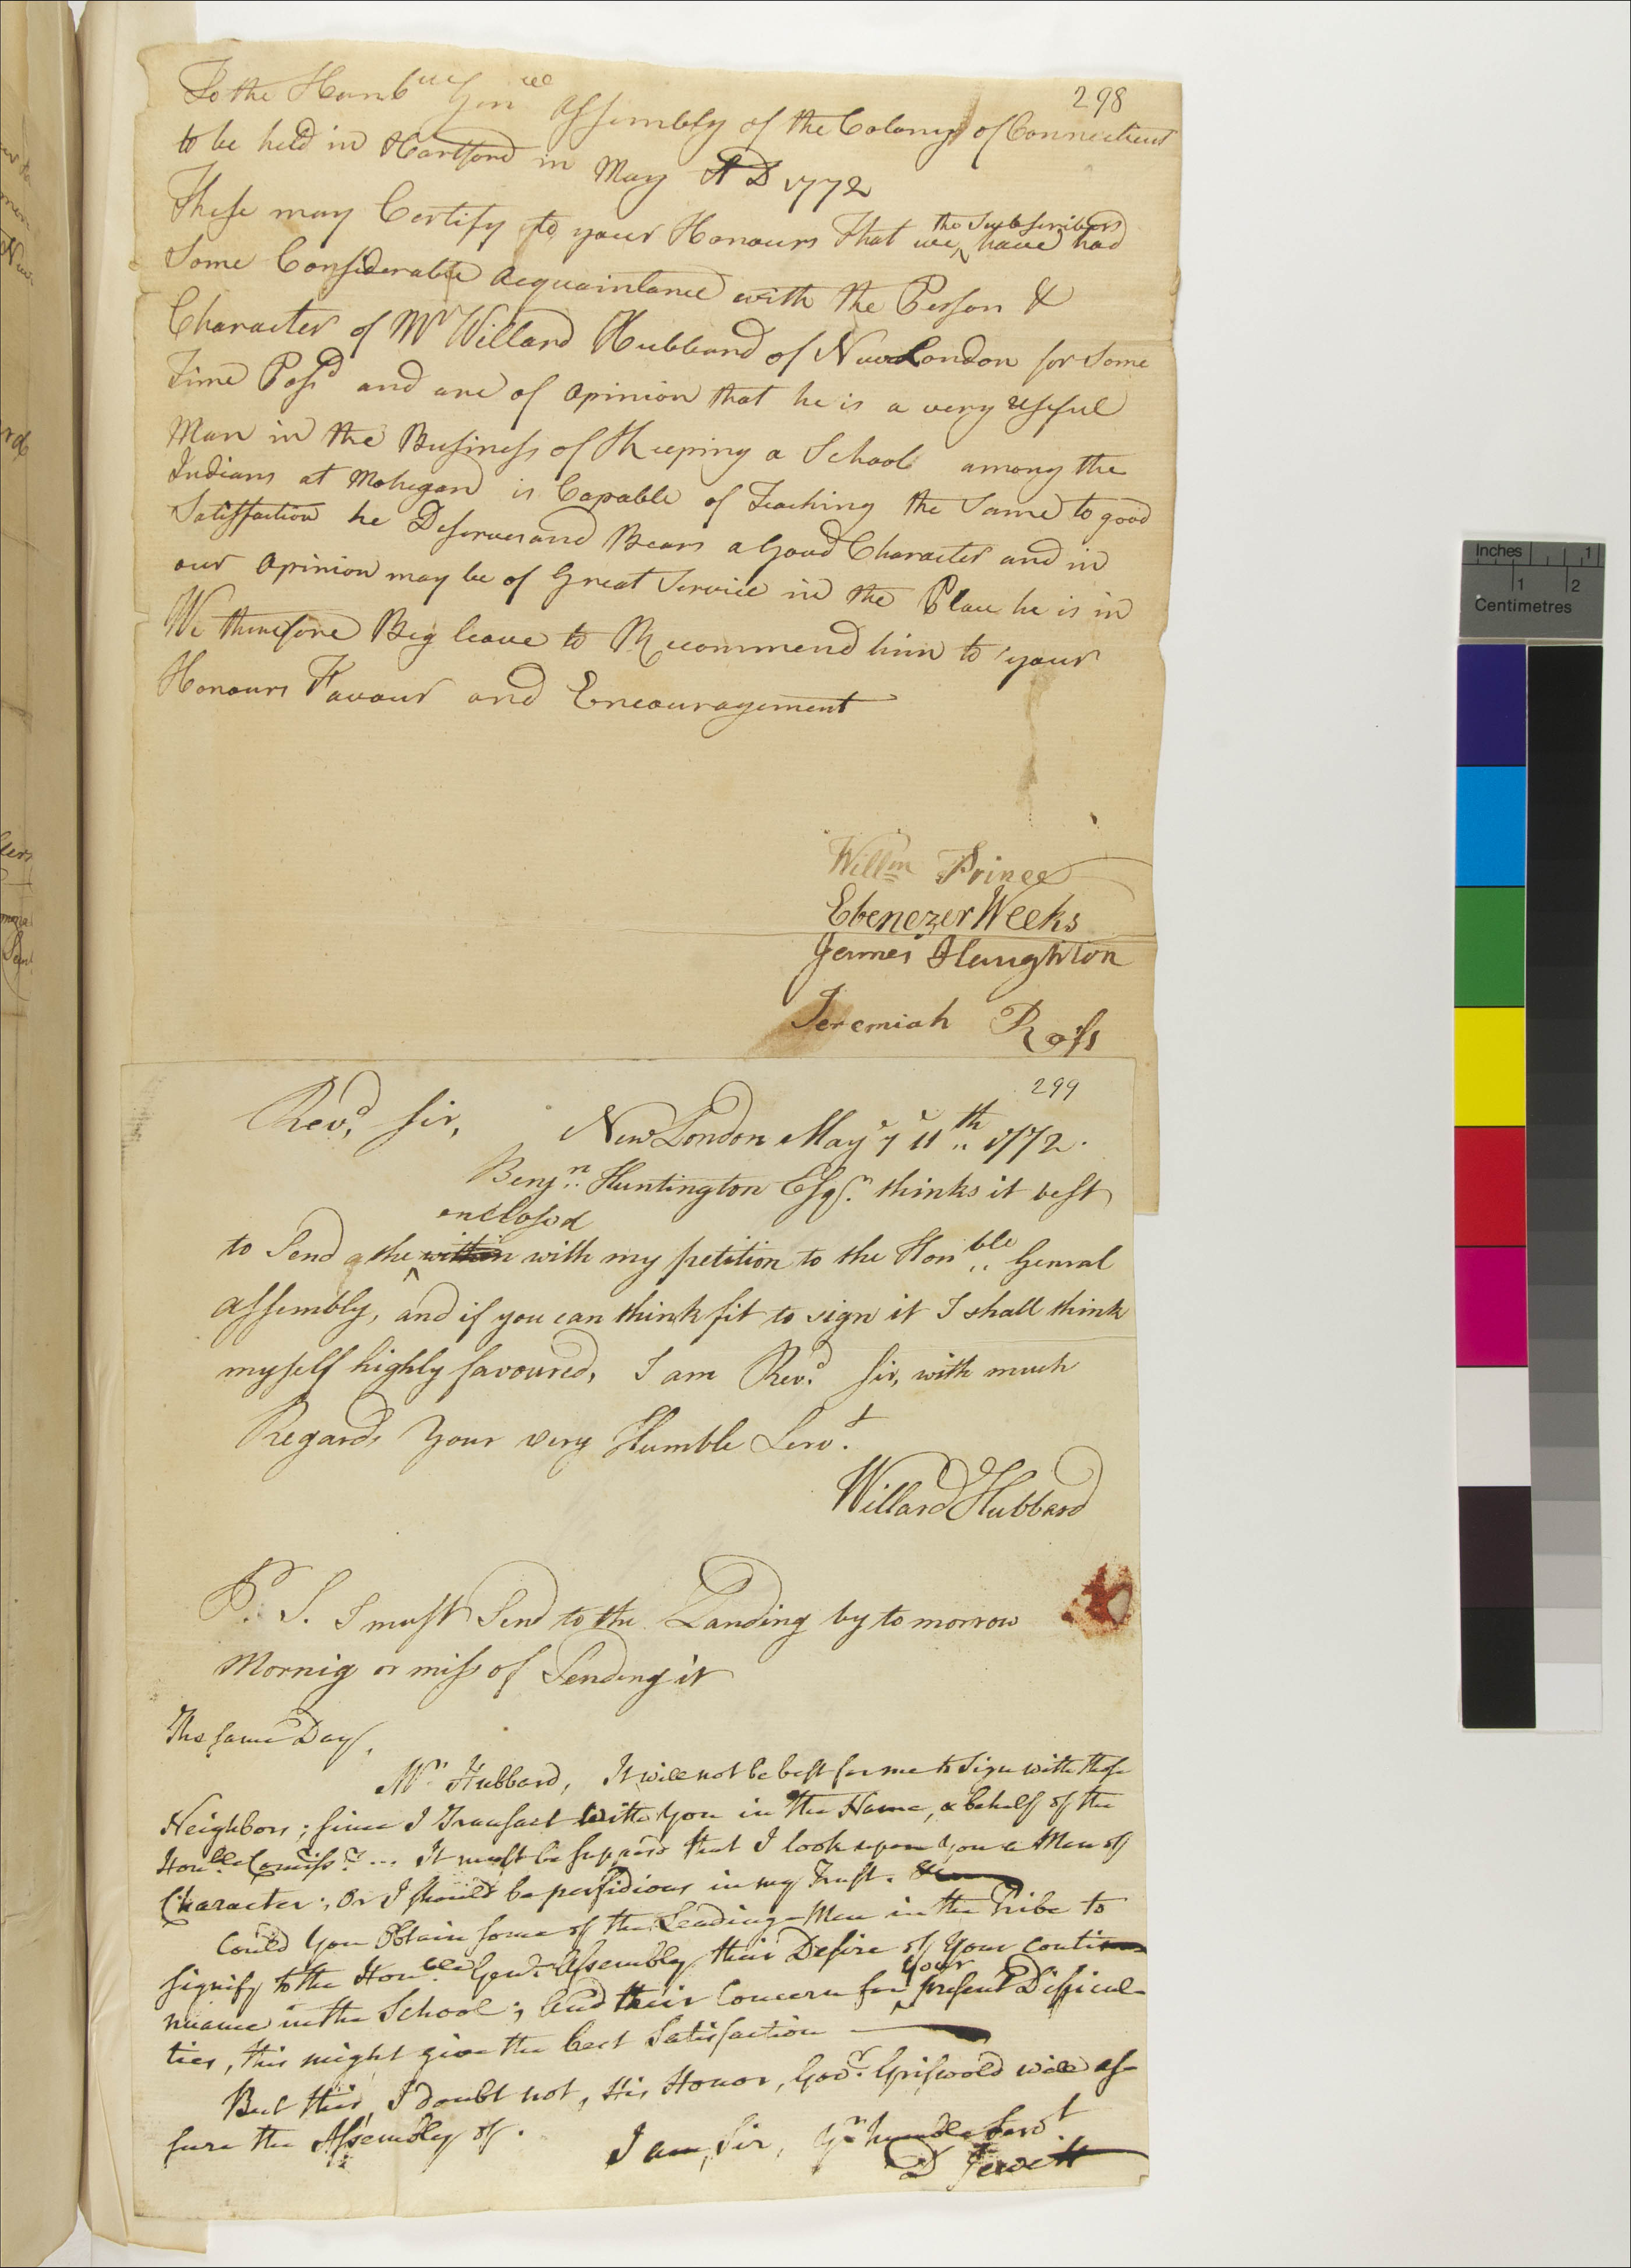 298
To the Honble Genll Assembly of the Colony of Connecticut
to be held in Hartford in May AD 1772
These may Certify to your Honours That we the Subscribers have had
Some Considerable Acquaintance with the Person &
Character of Mr Willard Hubbard of New London for Some
Time Past and are of Opinion that he is a very Useful
Man in the Business of Keeping a School among the
Indians at Mohegan is Capable of Teaching the Same to good
Satisfaction he Deserves and Bears a Good Character and in
our Opinion may be of Great Service in the Place he is in
We therefore Beg leave to Recommend him to your
Honours Favour and Encouragement
Willm Prince
Ebenezer Weeks
James Haughton
Jeremiah Ross
299
Revd, Sir, New London May ye 11th 1772.
Benjn. Huntington Esqr. thinks it best
enclosed
to Send the within with my petition to the Honble General
Assembly, and if you can think fit to sign it I shall think
myself highly favoured, I am Revd. Sir, with much
Regards Your very Humble Servt.
Willard Hubbard
P. S. I must Send to the Landing by to morrow
Mornig or miss of Sending it
The same Day,
Mr. Hubbard, It will not be best for me to Sign with those
Neighbors; since I Transact with You in the Name, & behalf of the
Honble Comissrs ... It must be supposd that I look upon you a Man of
Character; Or I should be perfidious in my Trust.
Could You Obtain some of the Leading Men in the Tribe to
signify to the Honble Genl. Assembly their Desire of Your conti
nuance in the School; and their Concern for your present Difficul-
ties, this might give the best Satisfaction
But this, I doubt not, His Honor, Govr. Griswold will as-
sure the Assembly of.
I am, Sir, Yr humble Servt
D Jewett
Inches 1
1 2
Centimetres